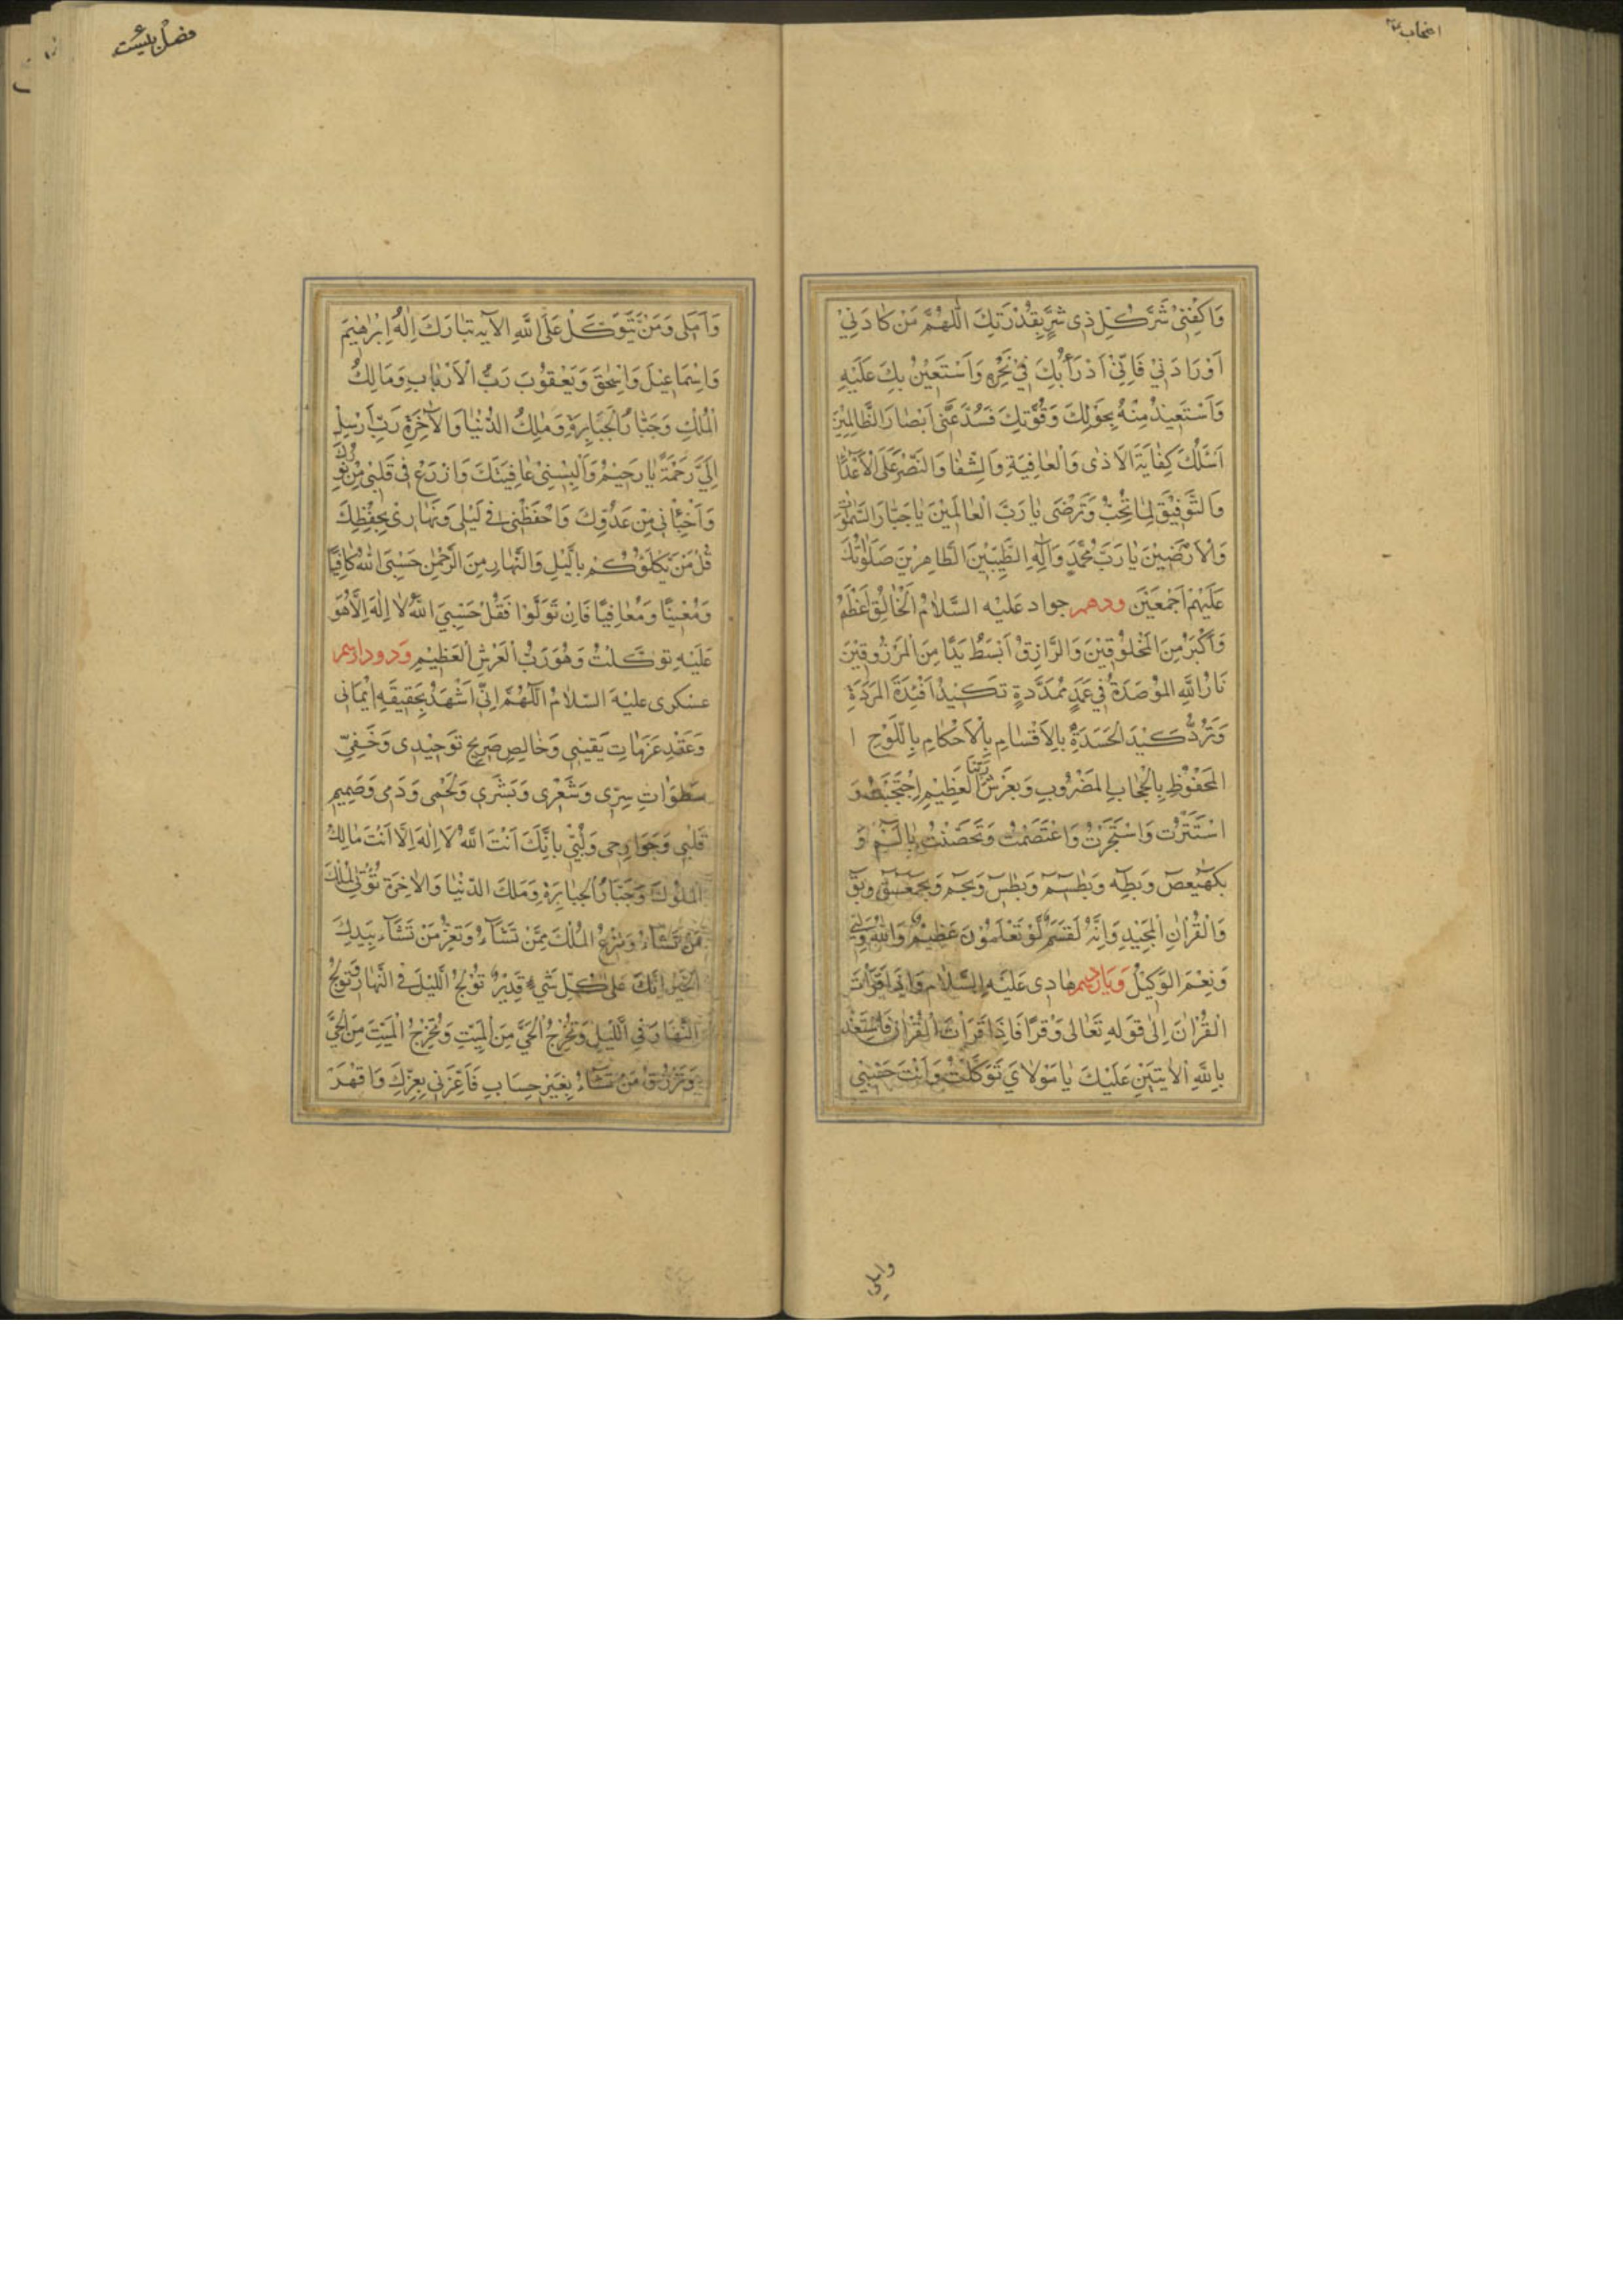 وَاكْفِنِیْ شَرَّ كُلِّ ذِی شَرٍّ بِقُدْرَتِكَ اَللّٰهُمَّ مَنْ كَادَنِيْ
اَوْ رَادَنِيْ فَاِنِّيْ اَدْرَأُ بِكَ فِيْ نَحْرِهِ وَاَسْتَعِيْنُ بِكَ عَلَيْهِ
وَاَسْتَعِيْذُ مِنْهُ بِحَوْلِكَ وَقُوَّتِكَ فَسُدَّ عَنّٖى اَبْصَارَ الظَّالِمِيْنَ
اَسْئَلُكَ كِفَايَةَ الْاَذٰى وَالْعَافِيَةِ وَالشِّفَا وَالنَّصْرَ عَلَى الْاَعْدَا
وَالتَّوْفِيْقَ لِمَا تُحِبُّ وَتَرْضٰى يَا رَبَّ الْعَالَمِيْنَ يَا جَبَّارَ السَّمٰوَاتِ
وَالْاَرَضِيْنَ يَا رَبَّ مُحَمَّدٍ وَاٰلِهِ الطَّيِّبِيْنَ الطَّاهِرِيْنَ صَلَوٰتُكَ
عَلَيْهِمْ اَجْمَعِيْنَ ودهم جواد عَلَيْهِ السَّلَامُ اَلْخَالِقُ اَعْظَمُ
وَاَكْبَرُ مِنَ الْمَخْلُوْقِيْنَ وَالرَّازِقُ اَبْسَطُ يَدًا مِنَ الْمَرْزُوْقِيْنَ
نَارُ اللّٰهِ الْمُوْصَدَةُ فِيْ عَمَدٍ مُمَدَّدَةٍ تَكِيْدُ اَفْئِدَةَ الْمَرَدَةِ
وَتَرُدُّ كَيْدَ الْحَسَدَةِ بِالْاَقْسَامِ بِالْاَحْكَامِ بِاللَّوْحِ ا
الْمَحْفُوْظِ بِالْحِجَابِ الْمَضْرُوْبِ وَبِعَرْشِ رَبِّنَا الْعَظِيْمِ اِحْتَجَبْتُ وَ
اسْتَتَرْتُ وَاسْتَجَرْتُ وَاعْتَصَمْتُ وَتَحَصَّنْتُ بِالٓمٓ وَ
بِكٓهٰيٰعٓصٓ وَبِطٰهٰ وَبِطٰسٓمٓ وَبِطٰسٓ وَبِحٰمٓ وَبِحٰمٓعٓسٓقٓ وَبِقٓ
وَالْقُرْاٰنِ الْمَجِيْدِ وَاِنَّهُ لَقَسَمٌ لَوْ تَعْلَمُوْنَ عَظِيْمٌ وَاللّٰهُ وَلِيّٖ
وَنِعْمَ الْوَكِيْلُ وَيَازدهم هَادِی عَلَيْهِ السَّلَامُ وَاِذَا قَرَأْتَ
الْقُرْاٰنَ اِلٰى قَوْلِهِ تَعَالٰى وَقْرًا فَاِذَا قَرَأْتَ الْقُرْاٰنَ فَاسْتَعِذْ
بِاللّٰهِ الْاٰيَتَيْنِ عَلَيْكَ يَا مَوْلَايَ تَوَكَّلْتُ وَاَنْتَ حَسْبِيْ
وَاَمَلِی وَمَنْ يَتَوَكَّلْ عَلَى اللّٰهِ الاٰيه تَبَارَكَ اِلٰهُ اِبْرَاهِيْمَ
وَاِسْمَاعِيْلَ وَاِسْحٰقَ وَيَعْقُوْبَ رَبُّ الْاَرْبَابِ وَمَالِكُ
الْمُلْكِ وَجَبَّارُ الْجَبَابِرَةِ وَمَلِكُ الدُّنْيَا وَالْاٰخِرَةِ رَبِّ اَرْسِلْ
اِلَيَّ رَحْمَةً يَا رَحِيْمُ وَاَلْبِسْنِیْ عَافِيَتَكَ وَازْرَعْ فِیْ قَلْبِیْ مِنْ نُوْرِكَ
وَاَخْبِأْنِیْ مِنْ عَدُوِّكَ وَاحْفَظْنِیْ فِیْ لَيْلِی وَنَهَارِیْ بِحِفْظِكَ
قُلْ مَنْ يَكْلَؤُكُمْ بِاللَّيْلِ وَالنَّهَارِ مِنَ الرَّحْمٰنِ حَسْبِيَ اللّٰهُ كَافِيًا
وَمُعِيْنًا وَمُعَافِيًا فَاِنْ تَوَلَّوْا فَقُلْ حَسْبِيَ اللّٰهُ لَا اِلٰهَ اِلَّا هُوَ
عَلَيْهِ تَوَكَّلْتُ وَهُوَ رَبُّ الْعَرْشِ الْعَظِيْمِ وَدوازدهم
عسكری عَلَيْهِ السَّلَامُ اَللّٰهُمَّ اِنّٖی اَشْهَدُ بِحَقِيْقَةِ اِيْمَانِی
وَعَقْدِ عَزَمَاتِ يَقِيْنِی وَخَالِصِ صَرِيْحِ تَوْحِيْدِی وَخَفِيِّ
سَطَوَاتِ سِرّٖی وَشَعْرِی وَبَشَرِی وَلَحْمِی وَدَمِی وَصَمِيْمِ
قَلْبِی وَجَوَارِحِی وَلُبّٖی بِاَنَّكَ اَنْتَ اللّٰهُ لَا اِلٰهَ اِلَّا اَنْتَ مَالِكُ
الْمُلُوْكِ وَجَبَّارُ الْجَبَابِرَةِ وَمَلِكُ الدُّنْيَا وَالْاٰخِرَةِ تُؤْتِی الْمُلْكَ
مَنْ تَشَاءُ وَتَنْزِعُ الْمُلْكَ مِمَّنْ تَشَآءُ وَتُعِزُّ مَنْ تَشَآءُ بِيَدِكَ
الْخَيْرُ اِنَّكَ عَلٰى كُلِّ شَیْءٍ قَدِيْرٌ تُوْلِجُ اللَّيْلَ فِی النَّهَارِ وَتُوْلِجُ
النَّهَارَ فِی اللَّيْلِ وَتُخْرِجُ الْحَیَّ مِنَ الْمَيِّتِ وَتُخْرِجُ الْمَيِّتَ مِنَ الْحَیِّ
وَتَرْزُقُ مَنْ تَشَآءُ بِغَيْرِ حِسَابٍ فَاَعِزَّنِی بِعِزِّكَ وَاقْهَرْ
وَاملی